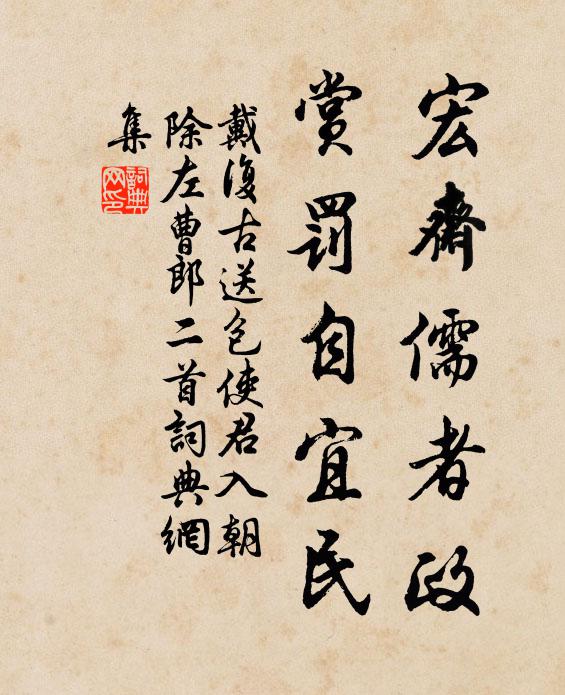 宏齋儒者政
賞罰自宜民
戴復古送包使君入朝
除左曹郎二首詞典網
集
詞典
网印